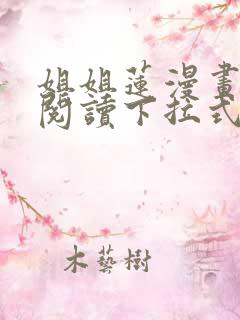 姐姐蓮漫畫
閱讀下拉式
木藝樹